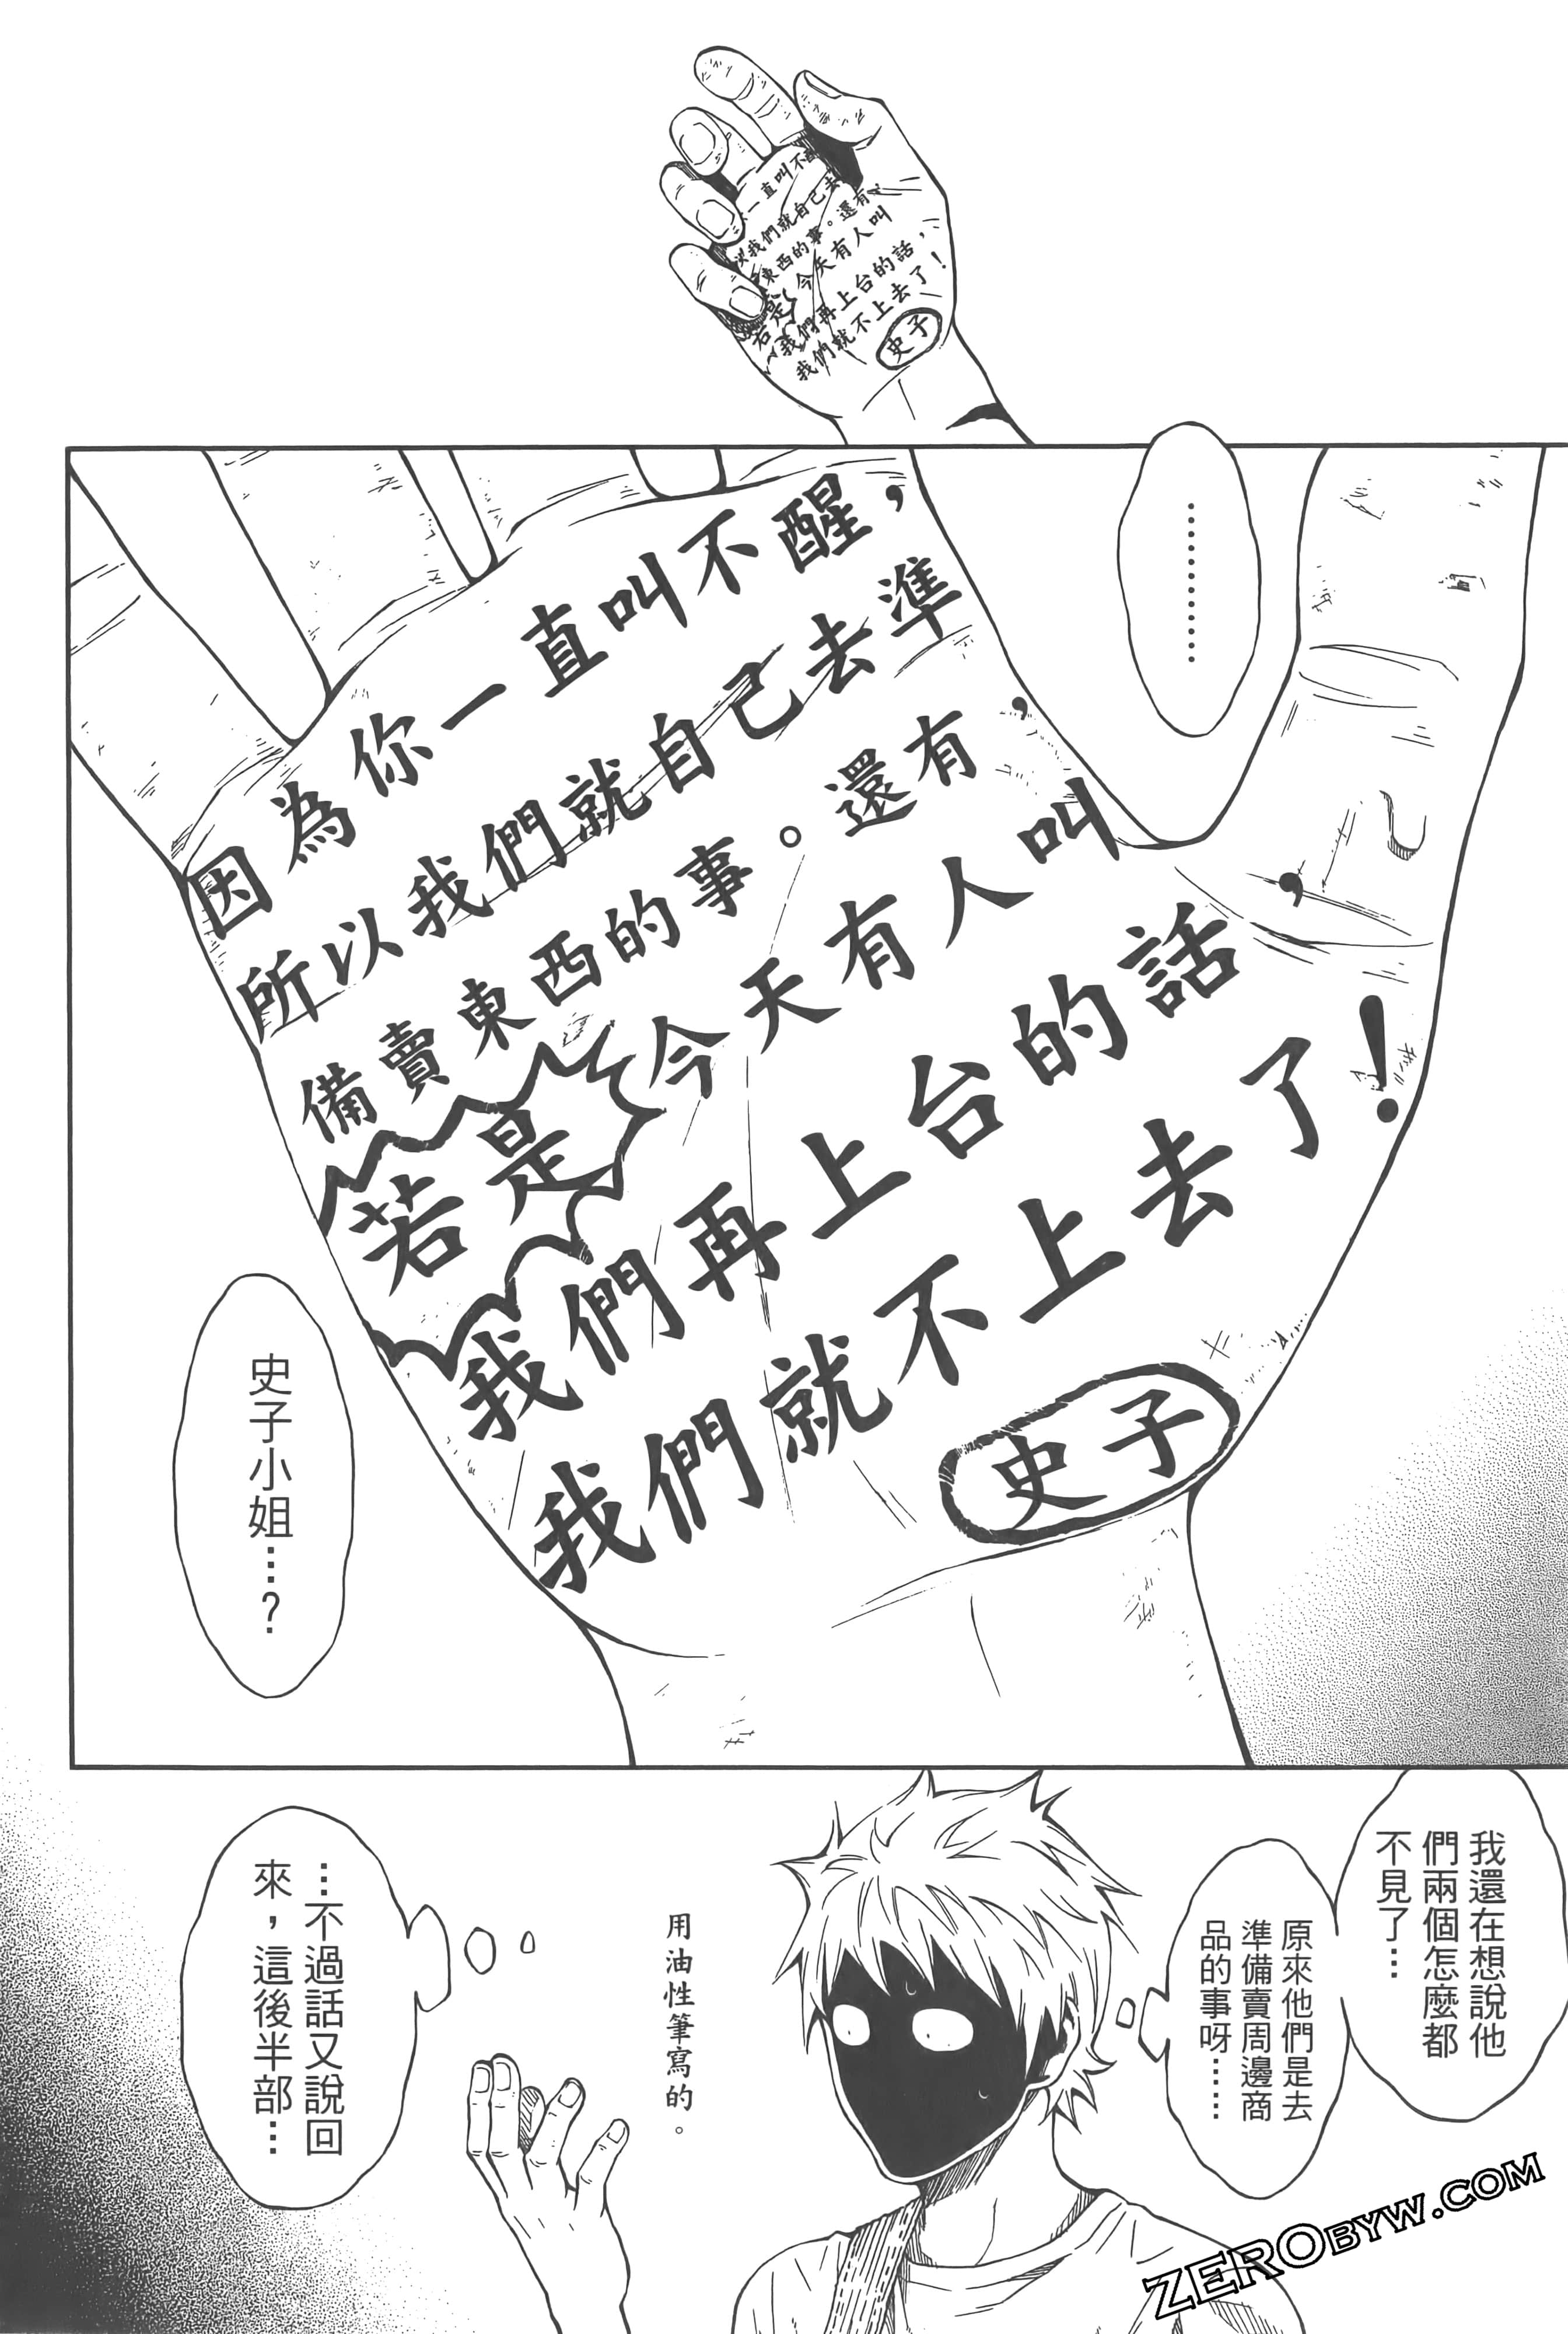 一直叫不醒
以我們就自己去
東西的事。還有,
若是今天有人叫
我們再上台的話,
我們就不上去了!
史子
…………
因為你一直叫不醒,
所以我們就自己去準
備賣東西的事。還有,
若是今天有人叫
我們再上台的話,
我們就不上去了!
史子
史子小姐…?
我還在想說他
們兩個怎麼都
不見了…
原來他們是去
準備賣周邊商
品的事呀……
用油性筆寫的。
…不過話又說回
來,這後半部…
ZEROBYW.COM